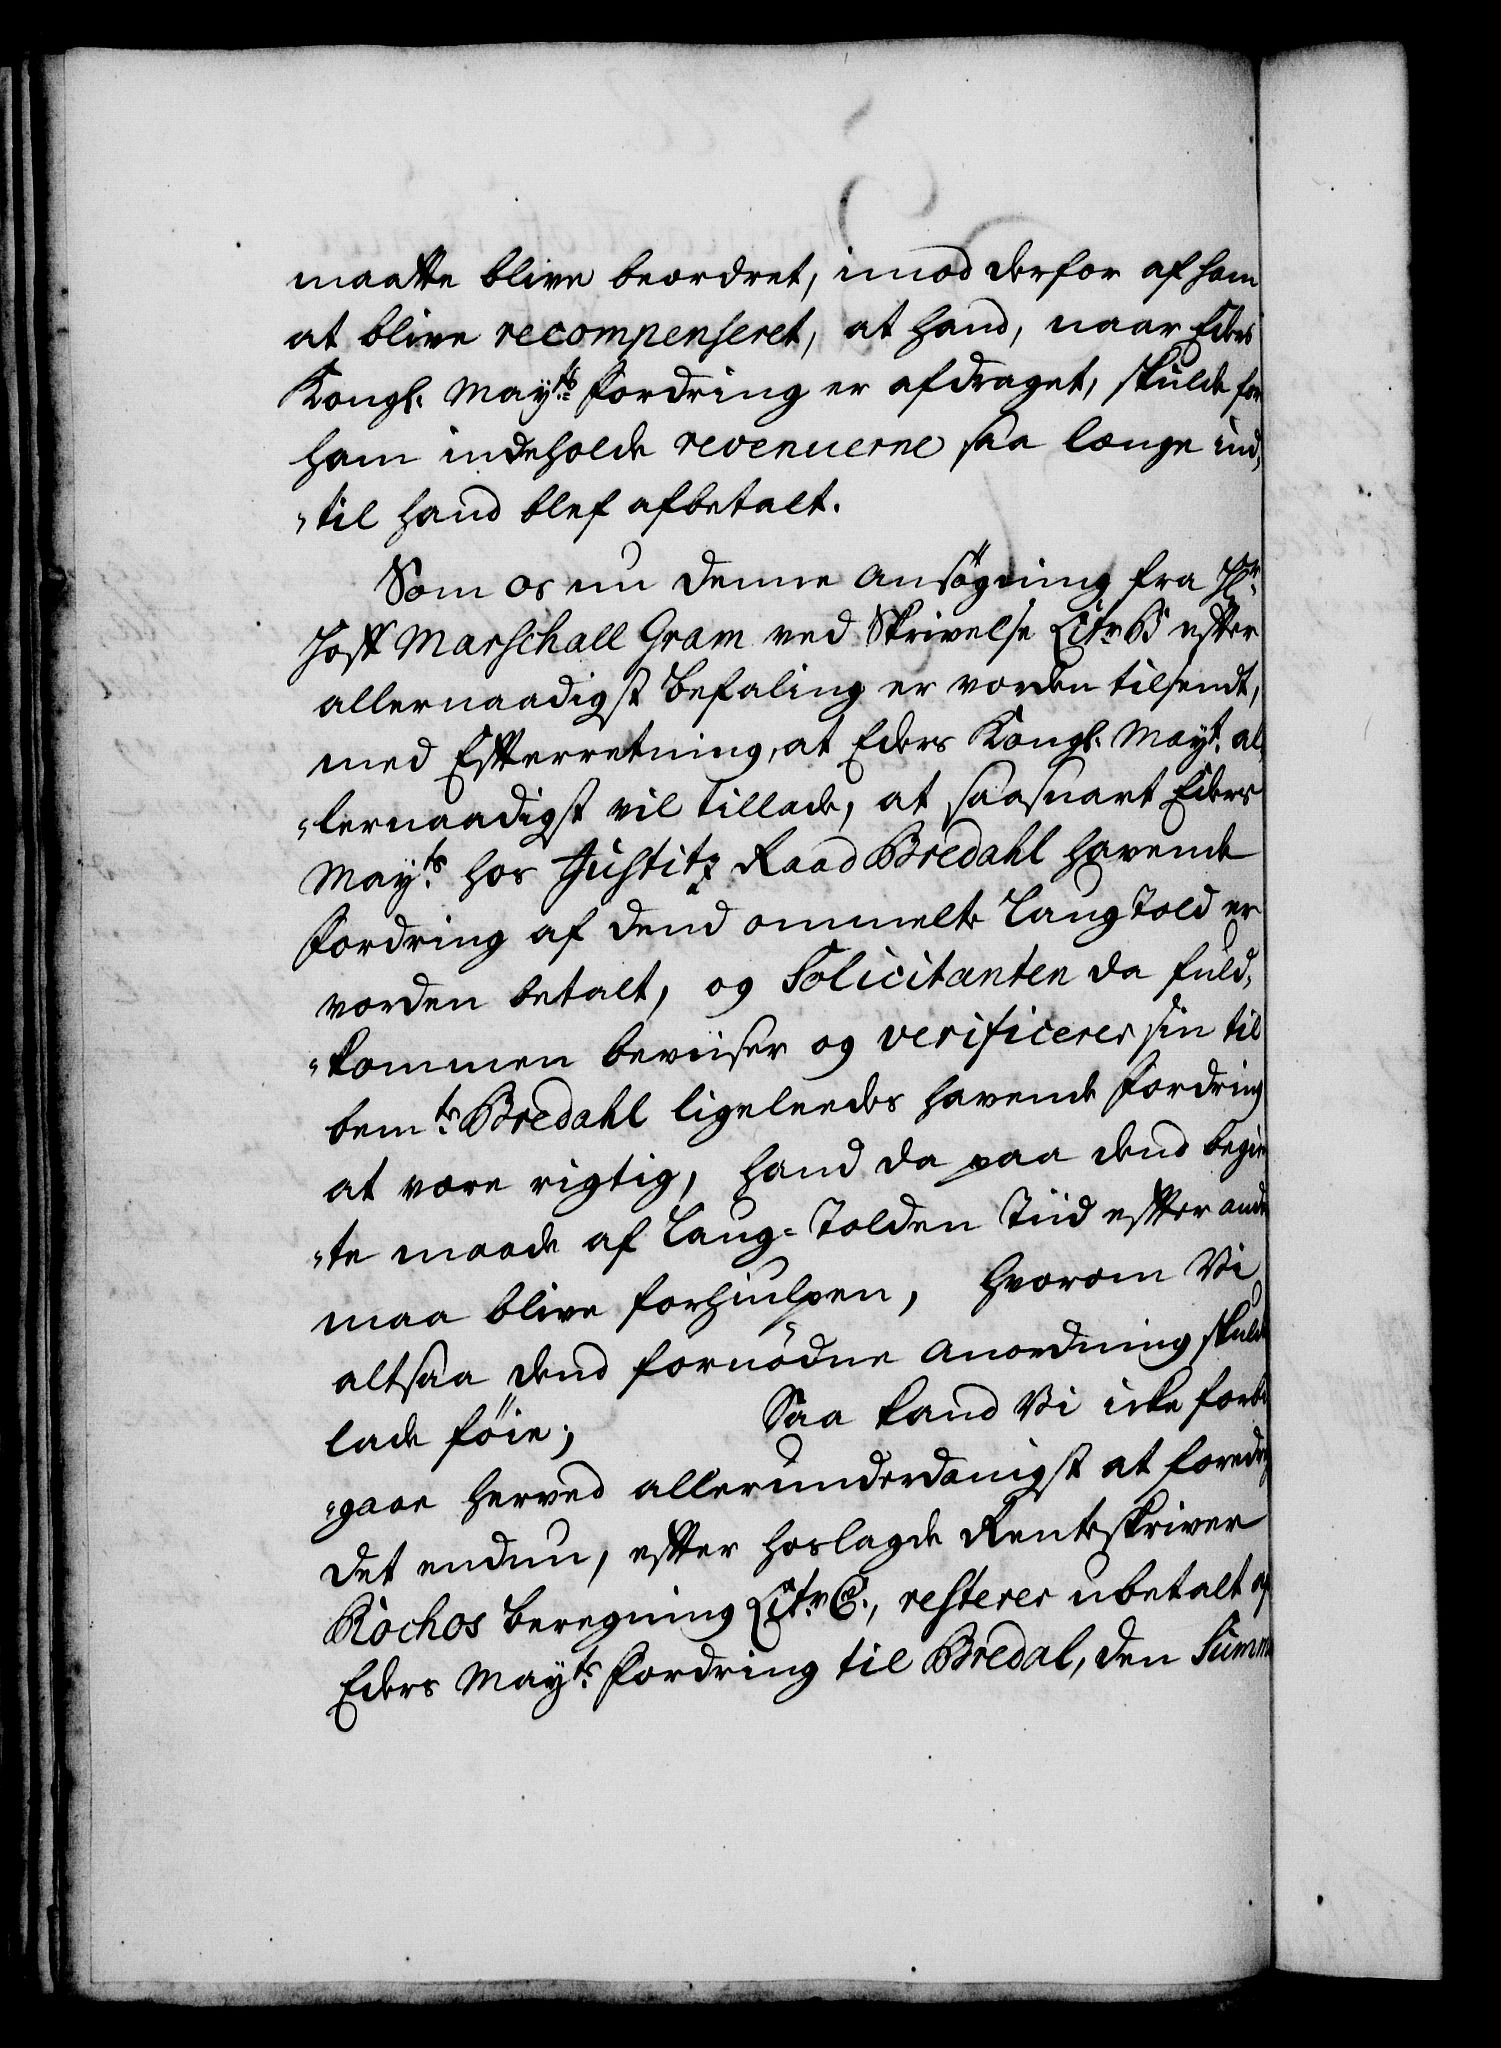 maatte blive beordret, imod derfor af ham
at blive recompenseret, at hand, naar Eders
Kongl. Mayts fordring er afdraget, skulde for
ham indeholde revenuerne saa længe ind,
"til hand blef afbetalt.
Som os nu denne ansøgning fra Hr
Hoff Marschall Gram ved Skrivelse Litr B efter
allernaadigst befaling er vorden tilsendt,
med Efterretning, at Eders Kongl. Mayt. al,
"lernaadigst vil tillade, at saasnart Eders
Mayts hos Justitz Raad Bredahl havende
fordring af dend ommelte Laug Told er
vorden betalt, og Solicitanten da fuld,
"kommen beviiser og verificerer sin til
bemte Bredahl ligeleedes havende fordring
at være rigtig, hand da paa dend begier
"te maade af Laug-Tolden Tiid efter anden
maa blive forhiulpen, hvorom Vi
altsaa dend fornødne anordning skulde
lade føie; Saa kand Vi icke forbi
"gaae herved allerunderdanigst at foredrage
det endnu, efter hoslagde Renteskriver
Kochos beregning Litr C., resterer ubetalt af
Eders Mayts fordring til Bredal, den Summa